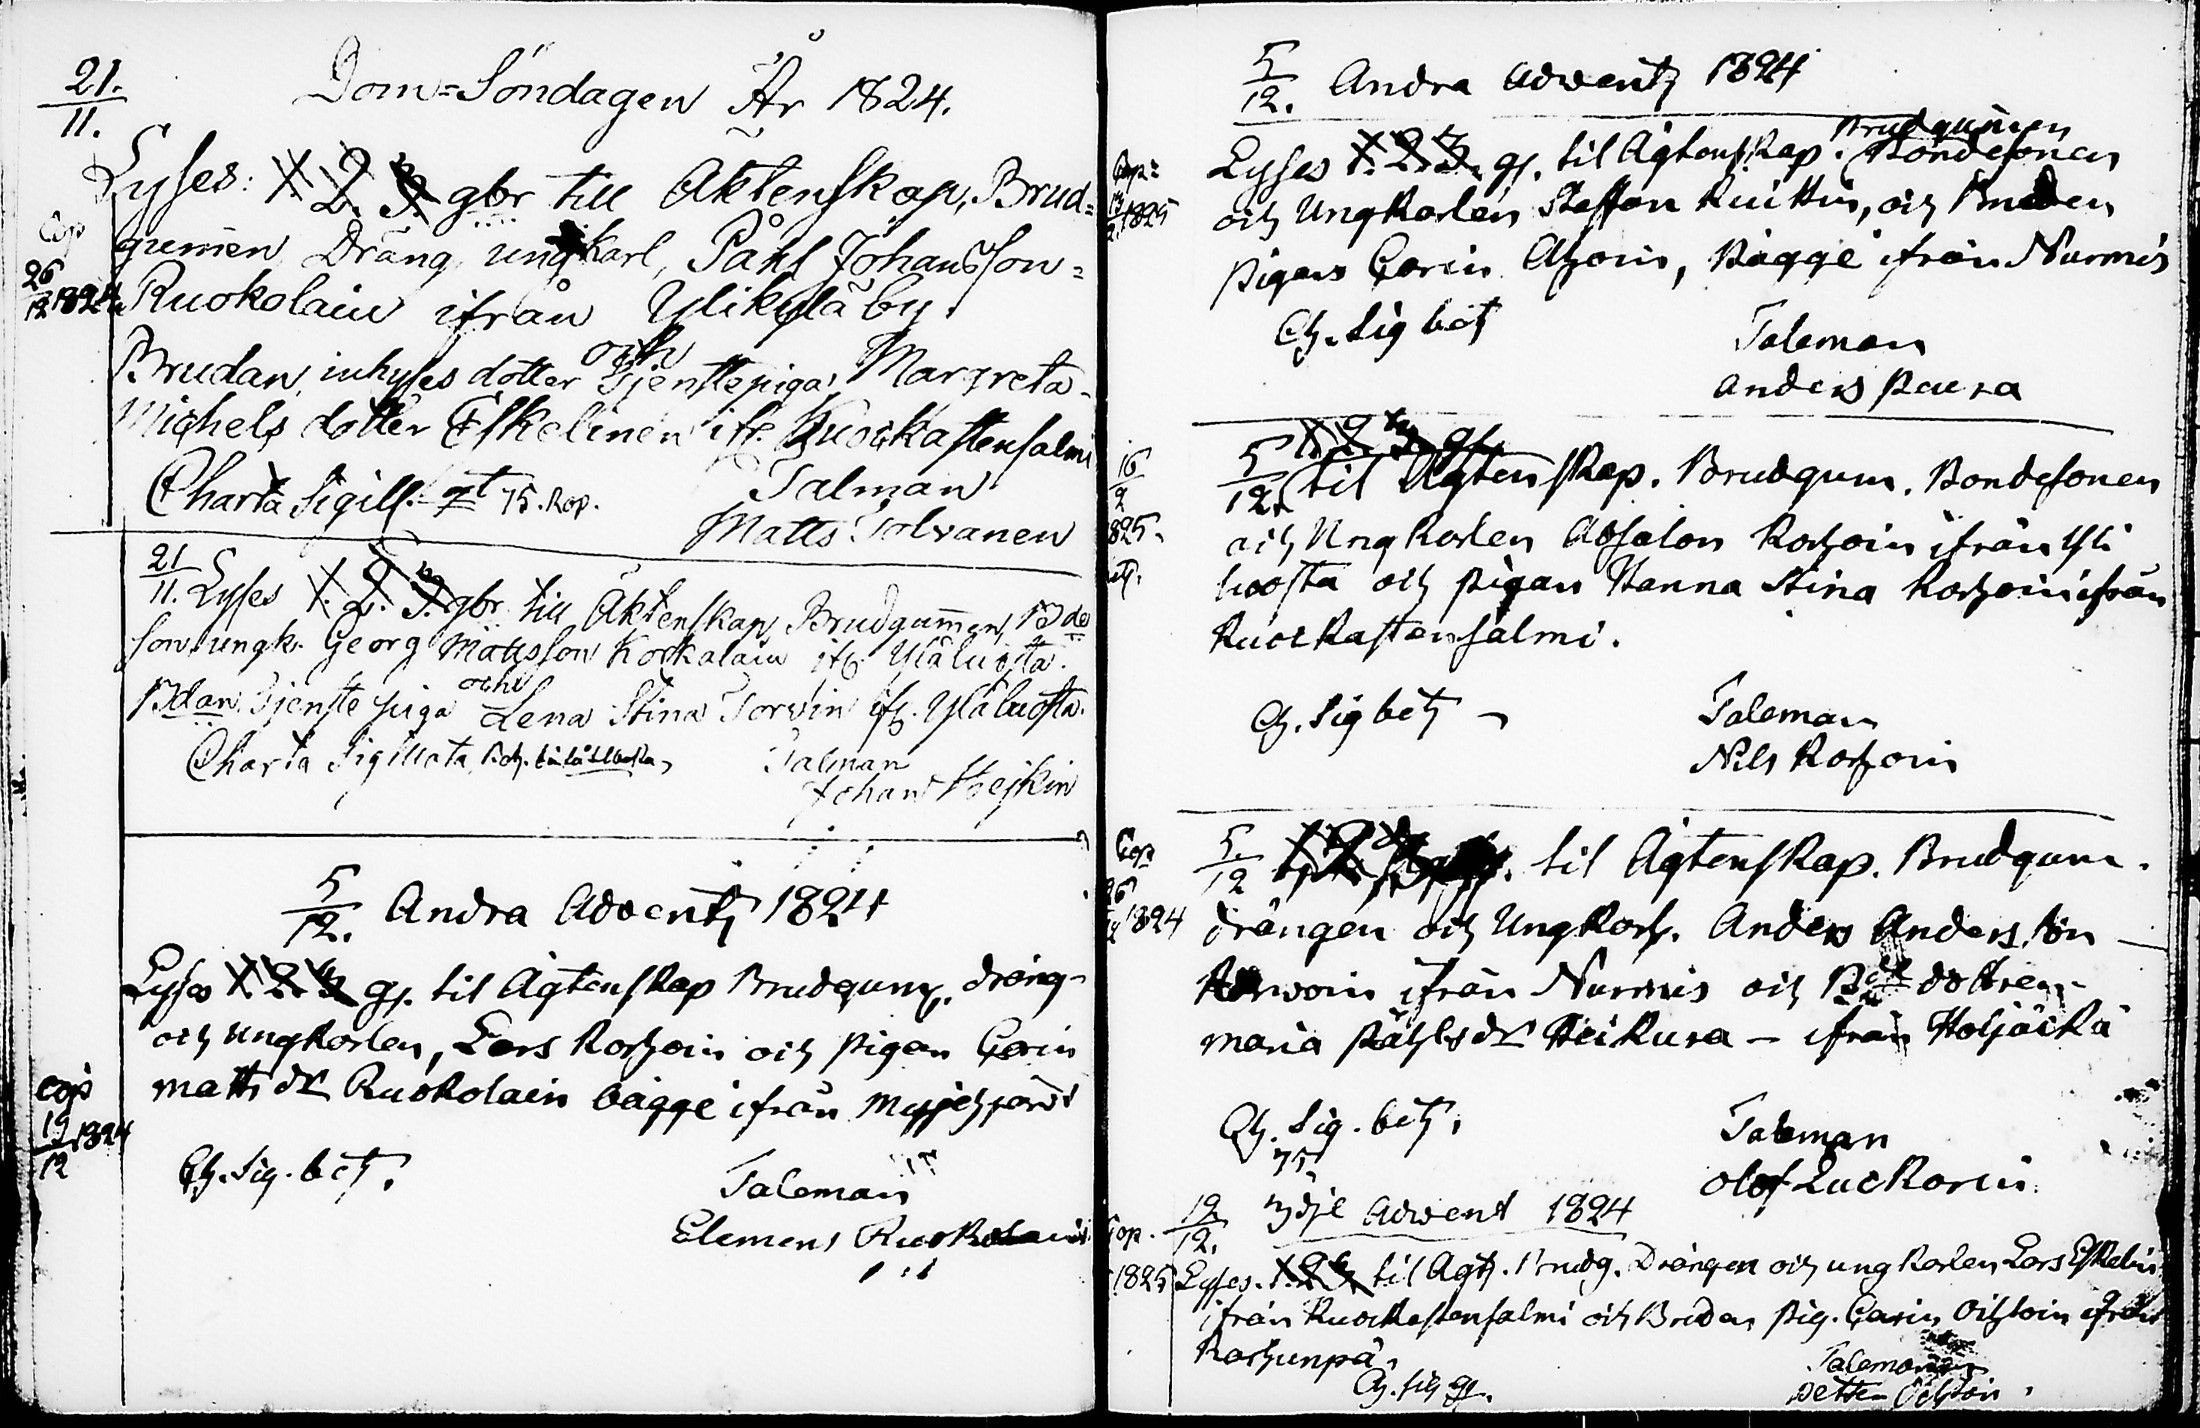 21.
11.
Dom=Söndagen År 1824.
Lyses: 1. 2. 3. gbr till Äktenskap, Brud=
gumen Dräng ungkarl, Påhl Johansson=
Ruokolain ifrån Ylikylä by.
Cop
26
12 1824
och
Brudan, inhyses dotter Tjenstepiga, Margreta
Michels dotter Eskelinen ifr. Kuockastensalmi
Charta Sigill. 75. Kop.
Talman
Matts Tolvanen
21
11. Lyses 1. 2. 3. gbr till Äktenskap, Brudgumen, Bde
son, ungk. Georg Mattsson Korkalain ifr. Yläluosta.
och
Bdan. Tjenste piga Lena Stina Torvin ifr. Yläluosta.
Charta Sigillata
Talman
Johan Heskin
5
12. Andra Advent 1824
Lyses 1. 2. 3 gr. til Ägtenskap Brudgum, dräng
och ungkarlen, Lars Korhoin och pigan Carin
matts dr Ruokolain bägge ifrån
Cop
19
12 1824
Ch. Sig. bet.
Taleman
Clemens Ruokolain
5
12. Andra Advent 1824
Brudgumen
Lyses 1. 2. 3. gr. til Ägtenskap. Bondesonen
och Ungkarlen Staffan Kuittin, och Bruden
pigan Carin, Bägge ifrån Nurmis
Cop:
1825
Ch. Sig bet
Taleman
Anders Paura
1 2 3 gr
5
12. til Ägtenskap. Brudgum. Bondesonen
och Ungkarlen Absalon Korhoin ifrån Yli
luosta och pigan Hanna Stina Korhoin ifrån
Kuockastensalmi.
16
2
1825.
Ch. Sig bet
Taleman
Nils Korhoin
5
12 1. 2. til Ägtenskap. Brudgum.
drängen och Ungkarl. Anders Anders son
ifrån Nurmis och dottren
maria Påhls dr Heikura - ifrån Höljäckä
Cop
26
12 1824
Ch. Sig. bet.
75
Taleman
Olof Luckarin
12
12. 3dje Advent 1824
Cop.
1825
Lyses. 1. 2 3 til Ägt. Brudg. Drängen och ungkarlen Lars Eskelin
ifrån Kuockastensalmi och Bruden pig. Carin ifrån
Korhunpä.
Ch. sig
Taleman